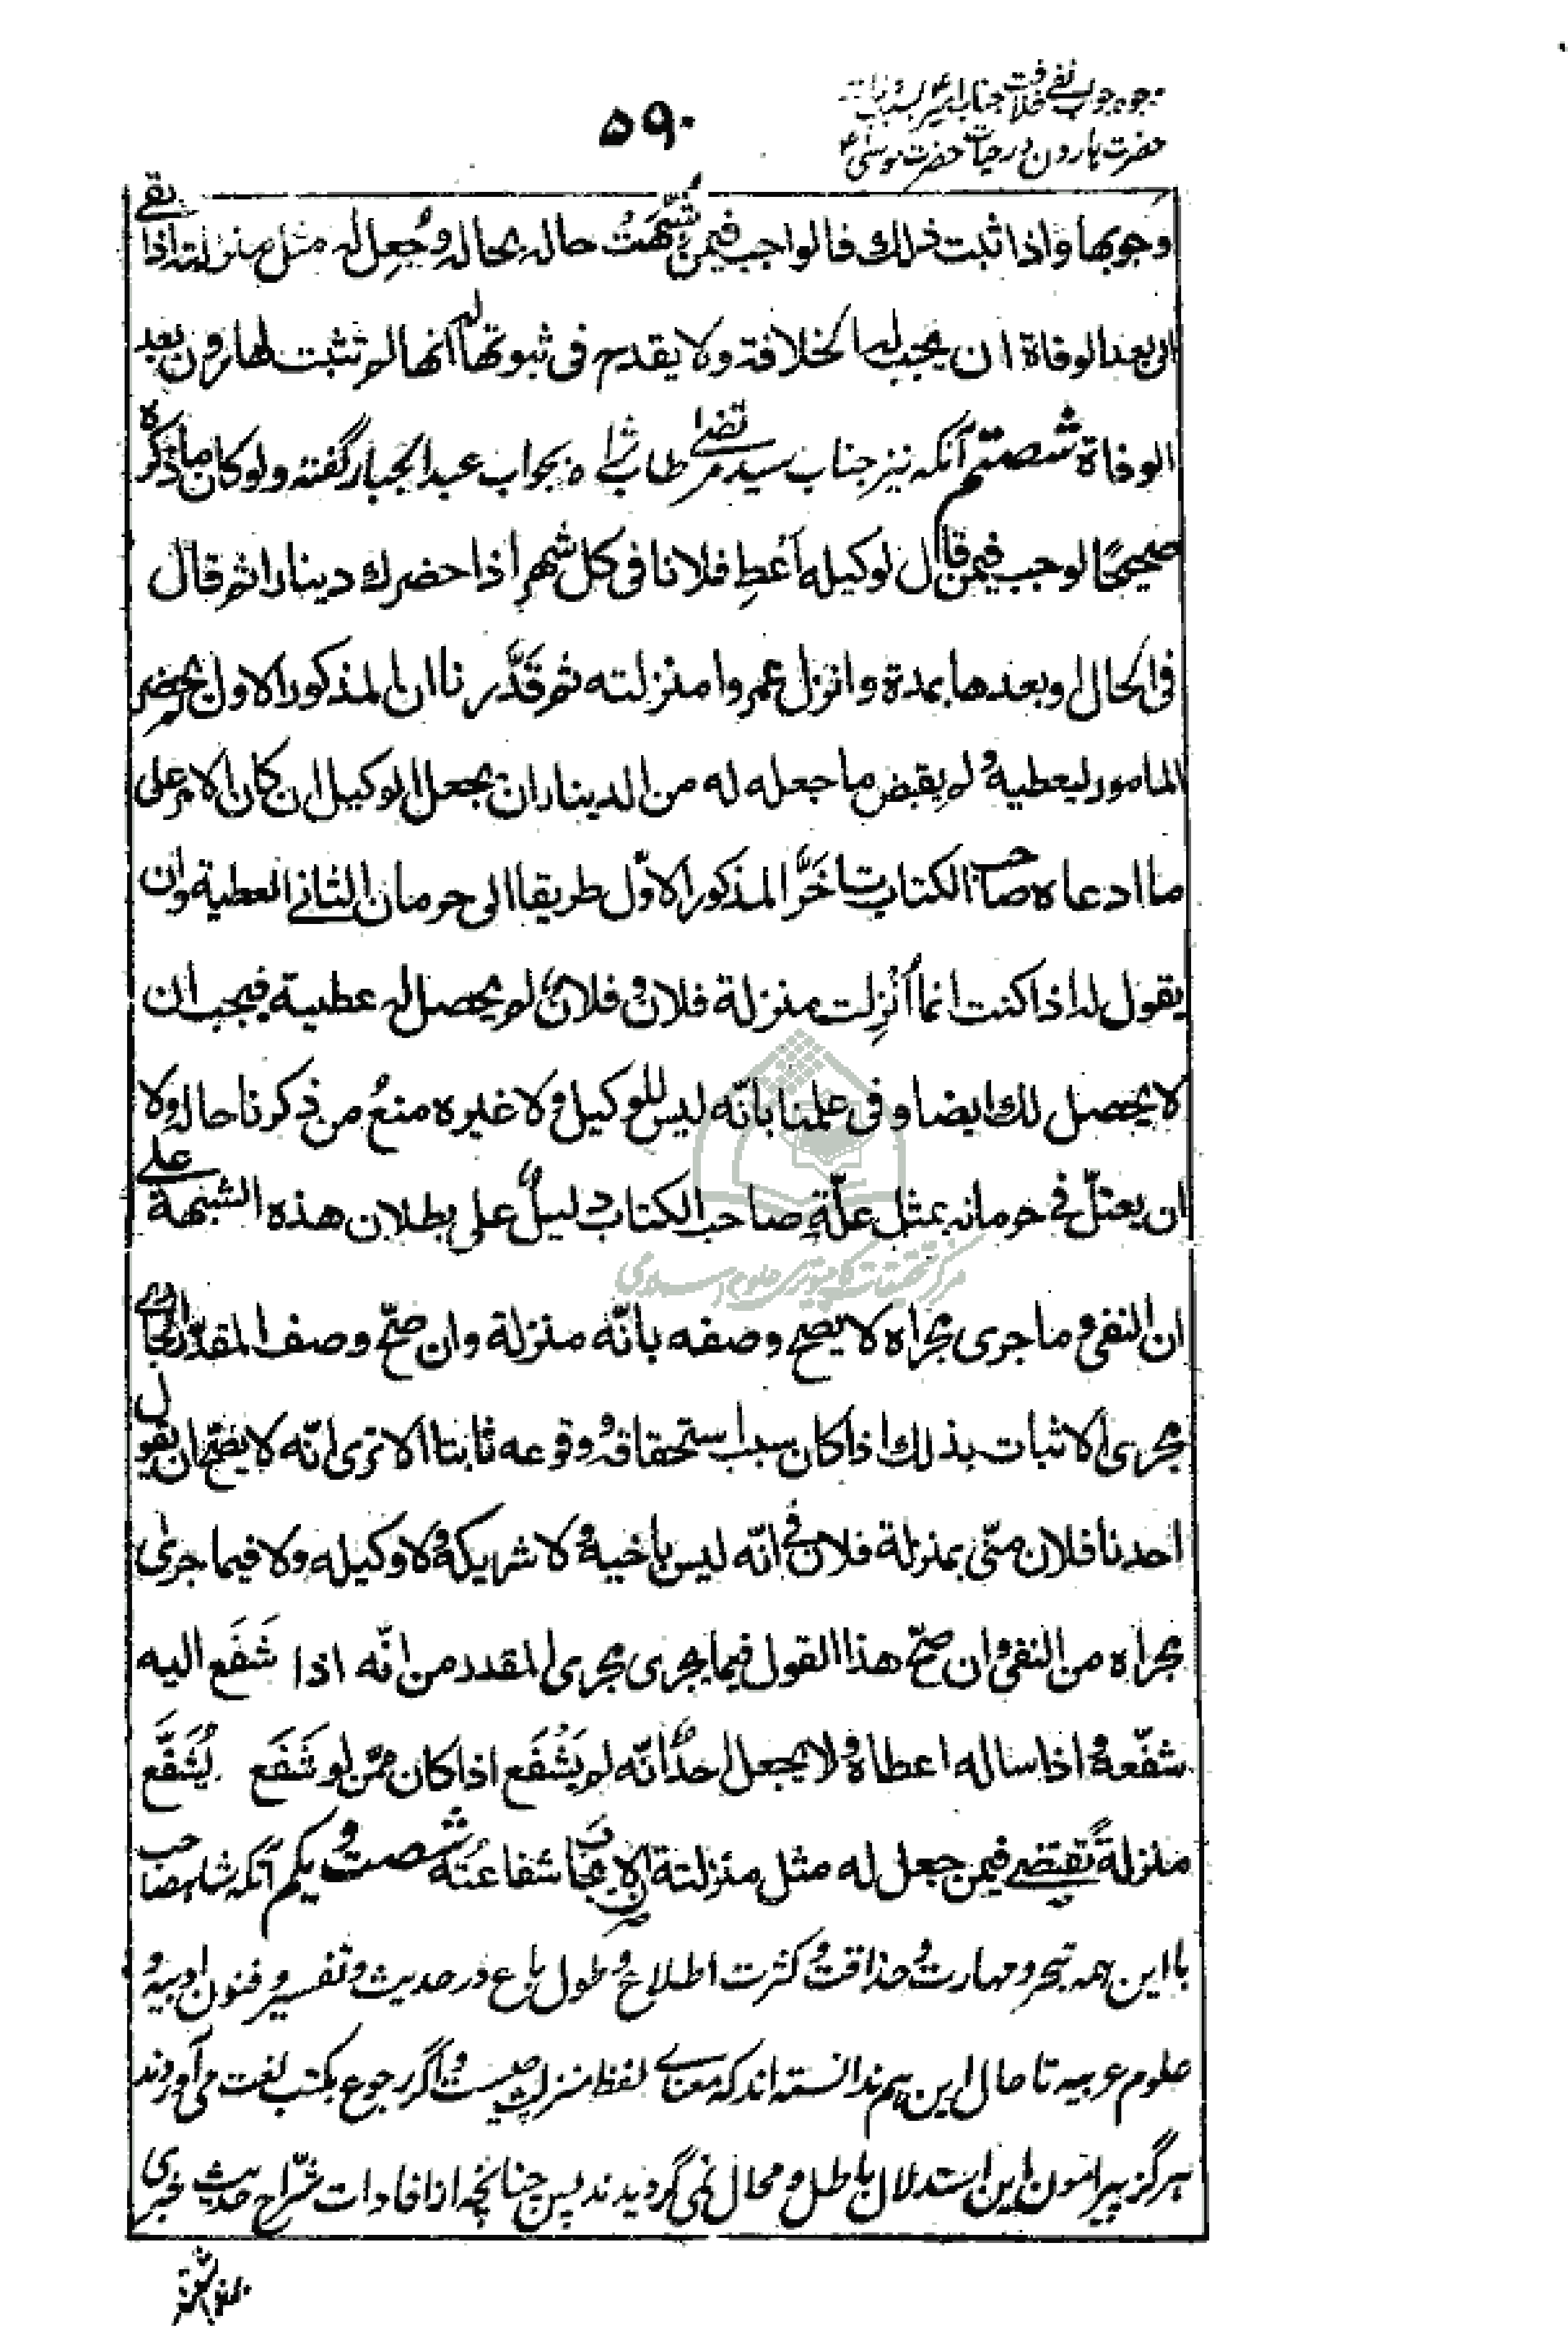 وجوه جواب نفی خلافت جناب امیر بسبب
۵۹۰
حضرت هارون در حیات حضرت موسی ع
وجوبها واذا ثبت ذلك فالواجب فیمن شُبّهَت حاله بحاله وجُعِل له مثل منزلته اذا بقی
الی بعد الوفاة ان یجب له الخلافة ولا یقدح فی ثبوتها له انها لم تثبت لهارون بعد
الوفاة شصتم آنکه نیز جناب سید مرتضی طاب ثراه بجواب عبد الجبار گفته ولو كان ما ذكره
صحیحًا لوجب فیمن قال لوكیله اَعْطِ فلانا فی كل شهر اذا حضرك دینارا ثم قال
فی الحال او بعدها بمدة وانزل عمروا منزلته ثم قَدَّرنا ان المذكور الاول لم یحضر
المامور لیعطیه ولم یقبض ما جعله له من الدینار ان یجعل الوكیل ان كان الامر علی
ما ادعاه صاحب الكتاب تاخَّر المذكور الاوّل طریقا الی حرمان الثانی العطیة وان
یقول له اذا كنت انما اُنْزِلت منزلة فلان وفلان لم یحصل له عطیة فیجب ان
لا یحصل لك ایضا وفی علمنا بانّه لیس للوكیل ولا غیره منعُ من ذكرنا حاله ولا
ان یعتلّ فی حرمانه بمثل علّةِ صاحب الكتاب دلیلٌ علی بطلان هذه الشبهة علی
ان النفی وما جری مجراه لا یصح وصفه بانّه منزلة وان صحّ وصف المقدّر الجاری
مجری الاثبات بذلك اذا كان سبب استحقاقه ووقوعه ثابتا الا تری انّه لا یصحّ ان یقول
احدنا فلان منّی بمنزلة فلان فی انّه لیس باخیه ولا شریكه ولا وكیله ولا فیما جری
مجراه من النفی وان صحّ هذا القول فیما یجری مجری المقدر من انّه اذا شَفَع الیه
شفّعه واذا ساله اعطاه ولا یجعل احدٌ انّه لم یَشْفَع اذا كان ممّن لو شَفَع لَشُفِّع
منزلةً تقتضی فیمن جعل له مثل منزلته ان لا یجاب شفاعتُه شصت و یکم آنکه شاهصاحب
با این همه تبحر و مهارت و حذاقت و کثرت اطلاع و طول باع در حدیث و تفسیر و فنون ادبیه و
علوم عربیه تا حال این هم ندانسته اند که معنای لفظ منزلت چیست و اگر رجوع بکتب لغت می آوردند
هرگز پیرامون این استدلال باطل و محال نمی گردیدند پس چنانچه از افادات شرّاح حدیث خبری
مرکز تحقیقات کامپیوتری علوم اسلامی